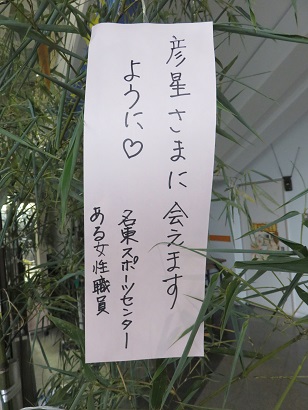 彦星さまに会えます
ように♡
名東スポーツセンター
ある女性職員